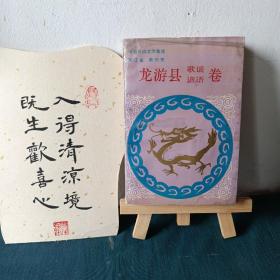 入得清凉境
既生歡喜心
中国民间文学集成
浙江省 衢州市
龙游县 歌谣 谚语 卷